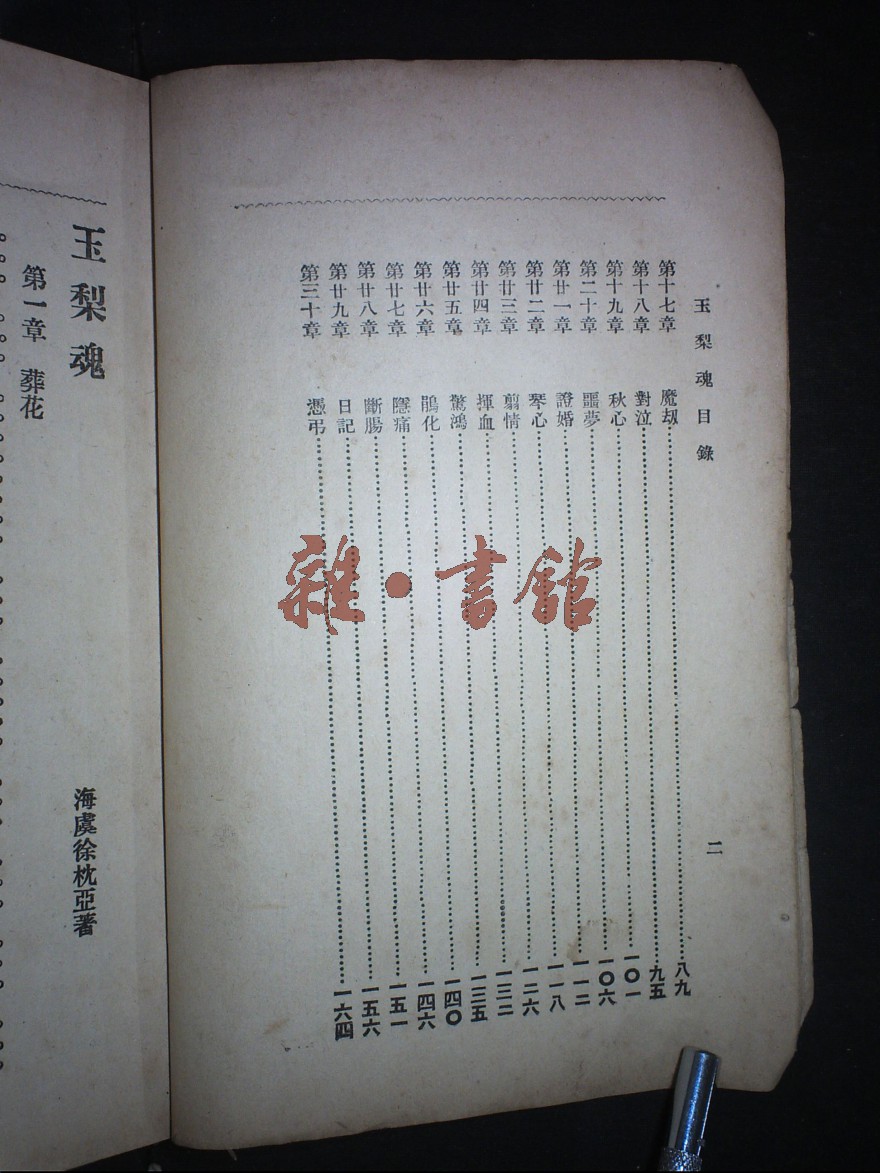 玉梨魂目錄
第十七章 魔刼……八九
第十八章 對泣……九五
第十九章 秋心……一〇一
第二十章 噩夢……一〇六
第廿一章 證婚……一一二
第廿二章 琴心……一一八
第廿三章 剪情……一二六
第廿四章 揮血……一三二
第廿五章 驚鴻……一三五
第廿六章 鵑化……一四〇
第廿七章 隱痛……一四六
第廿八章 斷腸……一五一
第廿九章 日記……一五六
第三十章 憑弔……一六四
二
玉梨魂
海虞徐枕亞著
第一章 葬花
雜·書館